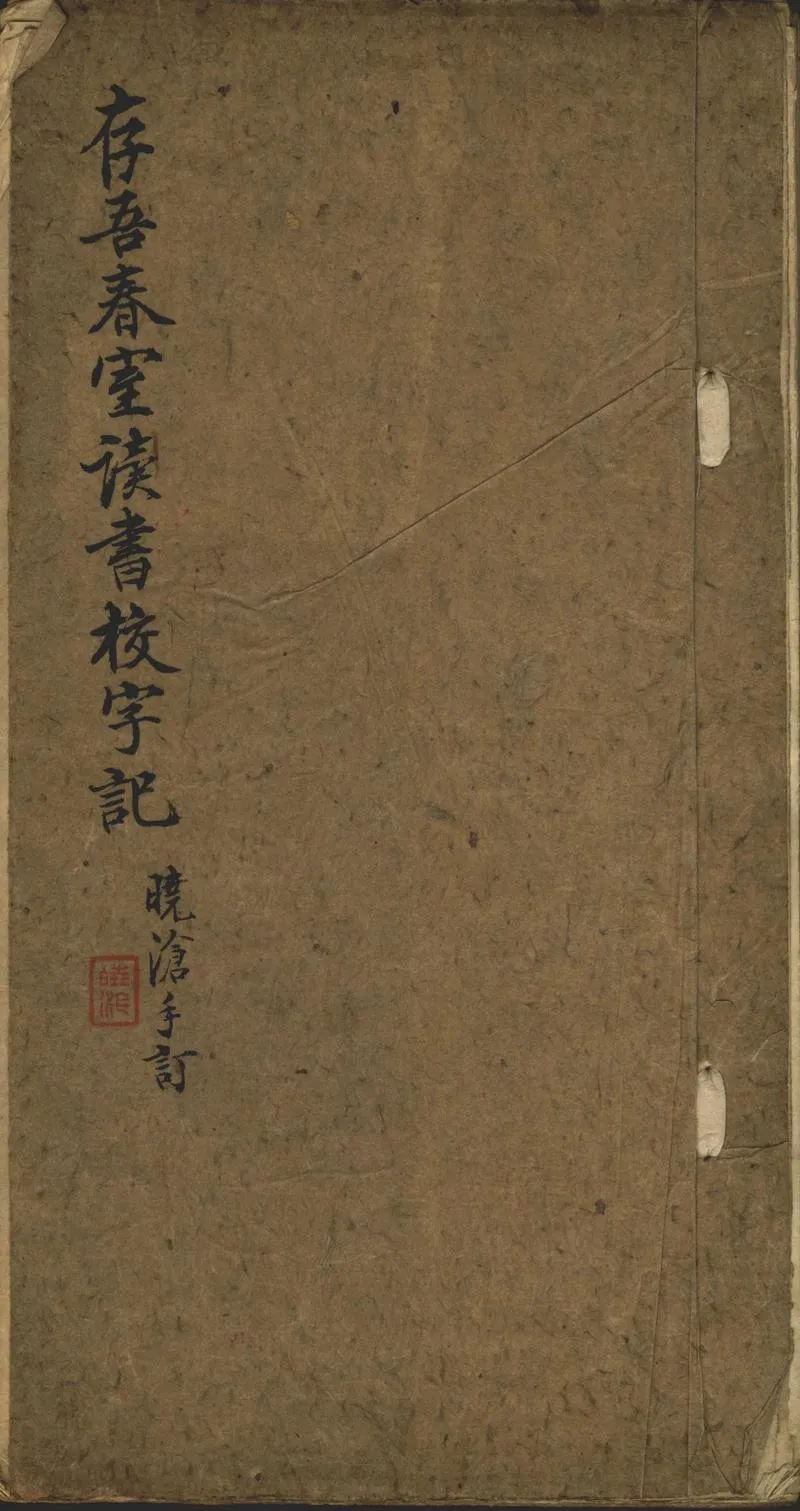 存吾春室读書校字記
曉滄手訂